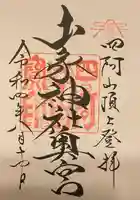 四阿山頂上登拝
山家神社奥宮
令和四年八月十四日